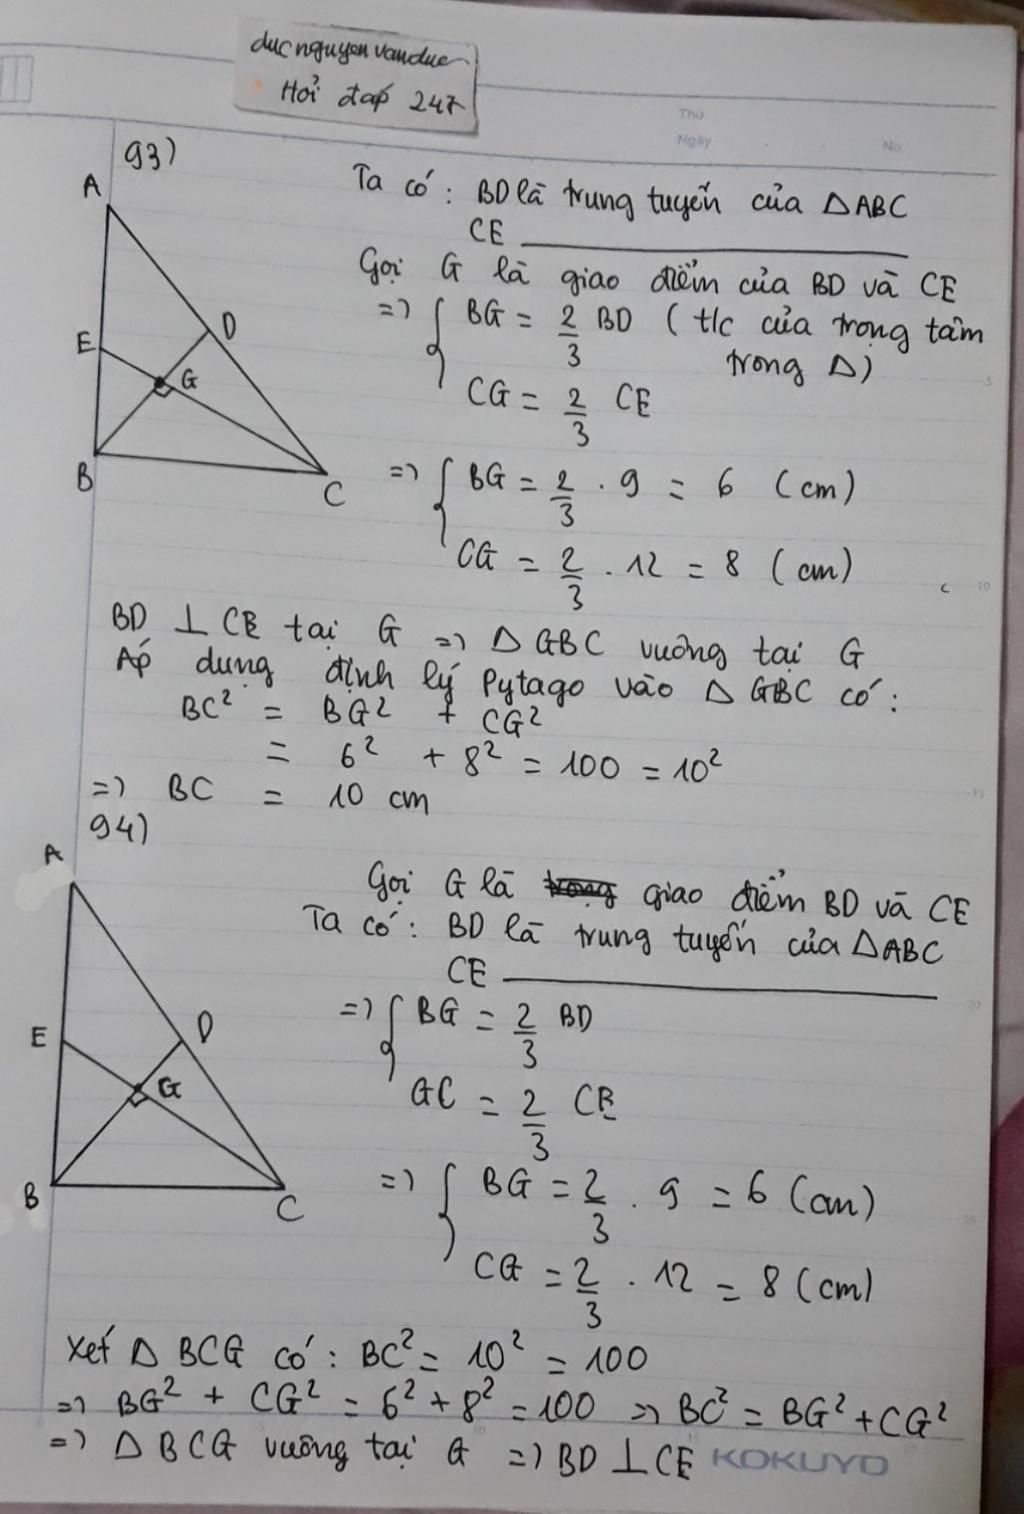 ducnguyenvanduc
Hỏi đáp 247
Thứ
Ngày
No.
93)
A
E
D
G
B
C
Ta có: BD là trung tuyến của △ABC
CE ________
Gọi G là giao điểm của BD và CE
=> { BG = 2/3 BD ( t/c của trọng tâm
trong △)
CG = 2/3 CE
=> { BG = 2/3 . 9 = 6 (cm)
CG = 2/3 . 12 = 8 (cm)
BD ⊥ CE tại G => △ GBC vuông tại G
Áp dụng định lý Pytago vào △ GBC có:
BC² = BG² + CG²
= 6² + 8² = 100 = 10²
=> BC = 10 cm
94)
A
E
D
G
B
C
Gọi G là giao điểm BD và CE
Ta có: BD là trung tuyến của △ABC
CE ________
=> { BG = 2/3 BD
GC = 2/3 CE
=> { BG = 2/3 . 9 = 6 (cm)
CG = 2/3 . 12 = 8 (cm)
Xét △ BCG có: BC² = 10² = 100
=> BG² + CG² = 6² + 8² = 100 => BC² = BG² + CG²
=> △ BCG vuông tại G => BD ⊥ CE
KOKUYO